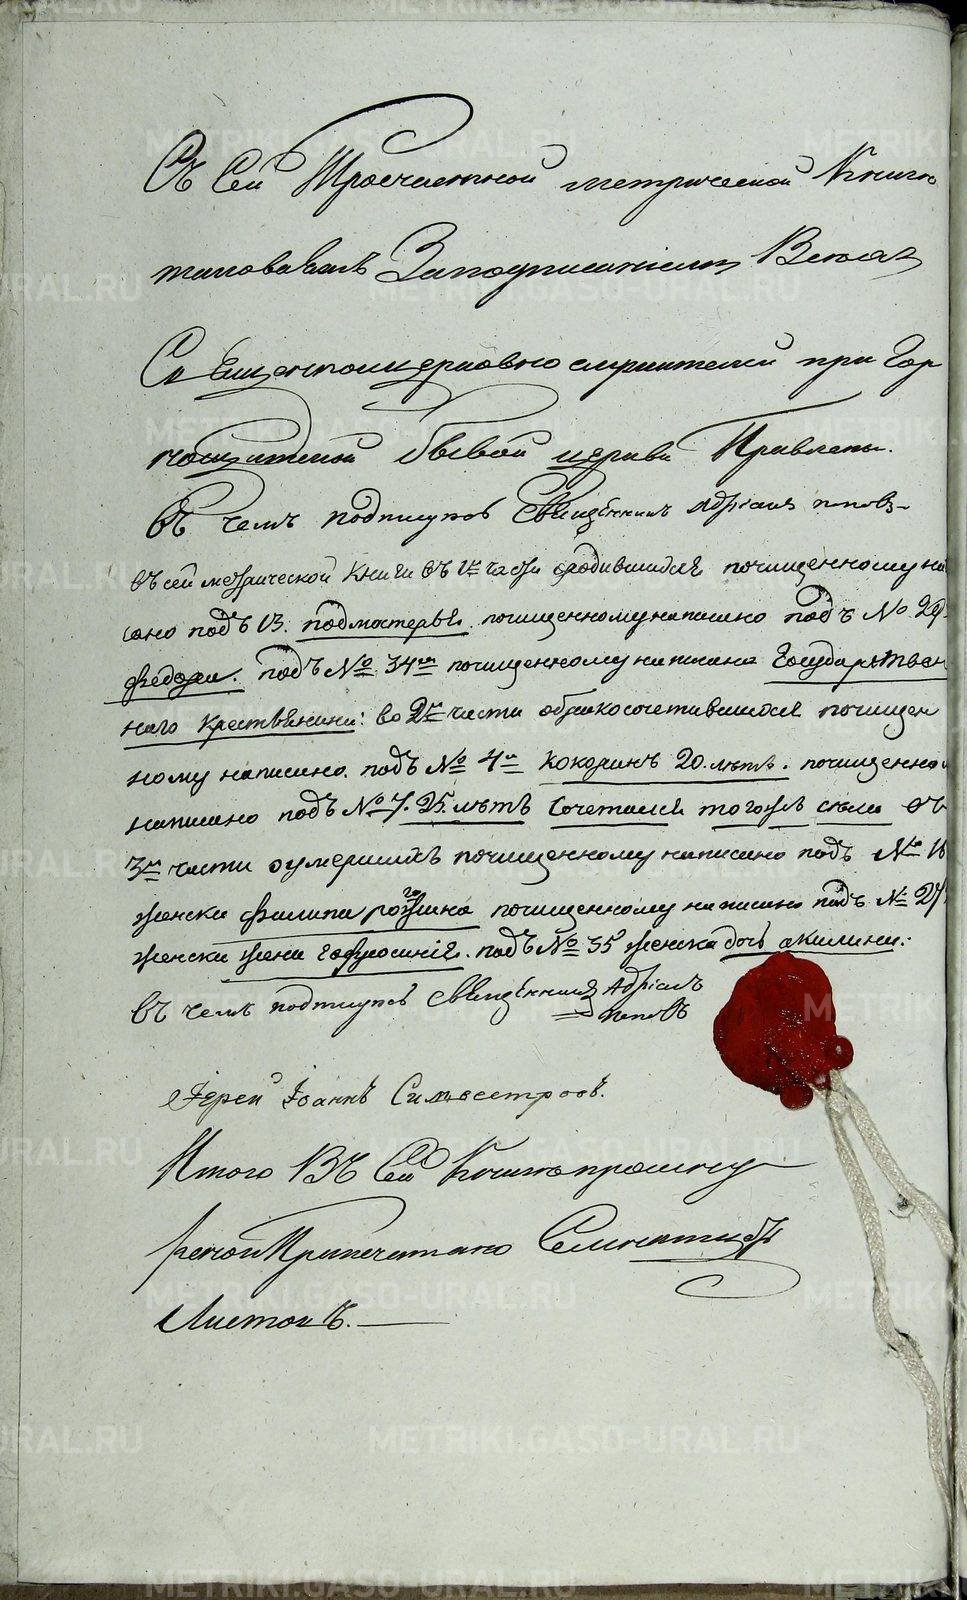 Съ Сей Троечастной метрической Книги
таковаяжъ За подписаніемъ Всѣхъ
Священноцерковнослужителей при Гор
нощитской бывой церкви
Въ чемъ подписуюсь Священникъ Адріанъ Поповъ
въ сей метрической книги въ 1й части ородившихся почищенному на
сано подъ 13. подмастерья. почищенному написано подъ № 29.
федора. подъ № 34мъ почищенному написана Государствен
наго крестьянина: во 2й части обракосочетавшихся почищен
ному написано. подъ № 4м кокоринъ 20. лѣтъ. почищенно
написано подъ № 7. 25. лѣтъ сочетался тогожъ села въ
3й части оумершихъ почищенному написано подъ № 16
женска филипа почищенному написано подъ № 27
женска жена подъ № 35 женска дочь акилина:
въ чемъ подписуюсь священникъ Адріанъ
Поповъ
Іерей Іоаннъ Силвестровъ.
Итого Въ Сей Книгѣ прошну
рованой Припечатано Семнатцать
Листовъ.
METRIKI.GASO-URAL.RU